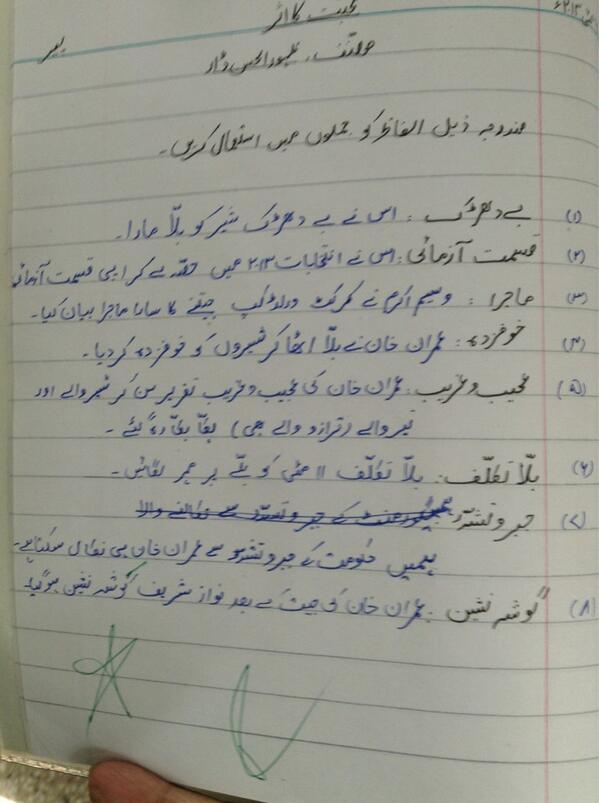 محبت کا اثر
پیر
مولف: ظہور الحسن ڈار
مندرجہ ذیل الفاظ کو جملوں میں استعمال کریں۔
(۱) بے دھڑک : اس نے بے دھڑک شیر کو بلّا مارا۔
(۲) قسمت آزمائی : اس نے انتخابات ۲۰۱۳ میں حصّہ لے کر اپنی قسمت آزمائی
(۳) ماجرا : وسیم اکرم نے کرکٹ ورلڈ کپ جیتنے کا سارا ماجرا بیان کیا۔
(۴) خوفزدہ : عمران خان نے بلّا اٹھا کر شیروں کو خوفزدہ کر دیا۔
(۵) عجیب و غریب : عمران خان کی عجیب و غریب تقریر سن کر شیر والے اور
تیر والے (ترازو والے بھی) ہکّا بکّا رہ گئے۔
(۶) بلّا تکلّف : بلّا تکلّف ۱۱ مئی کو بلّے پر مہر لگائیں۔
(۷) جبر و تشدّد : گورنمنٹ کے جبر و تشدّد سے نکالنے والا
ہمیں حکومت کے جبر و تشدد سے عمران خان ہی نکال سکتا ہے۔
(۸) گوشہ نشین : عمران خان کی جیت کے بعد نواز شریف گوشہ نشین ہو گیا۔